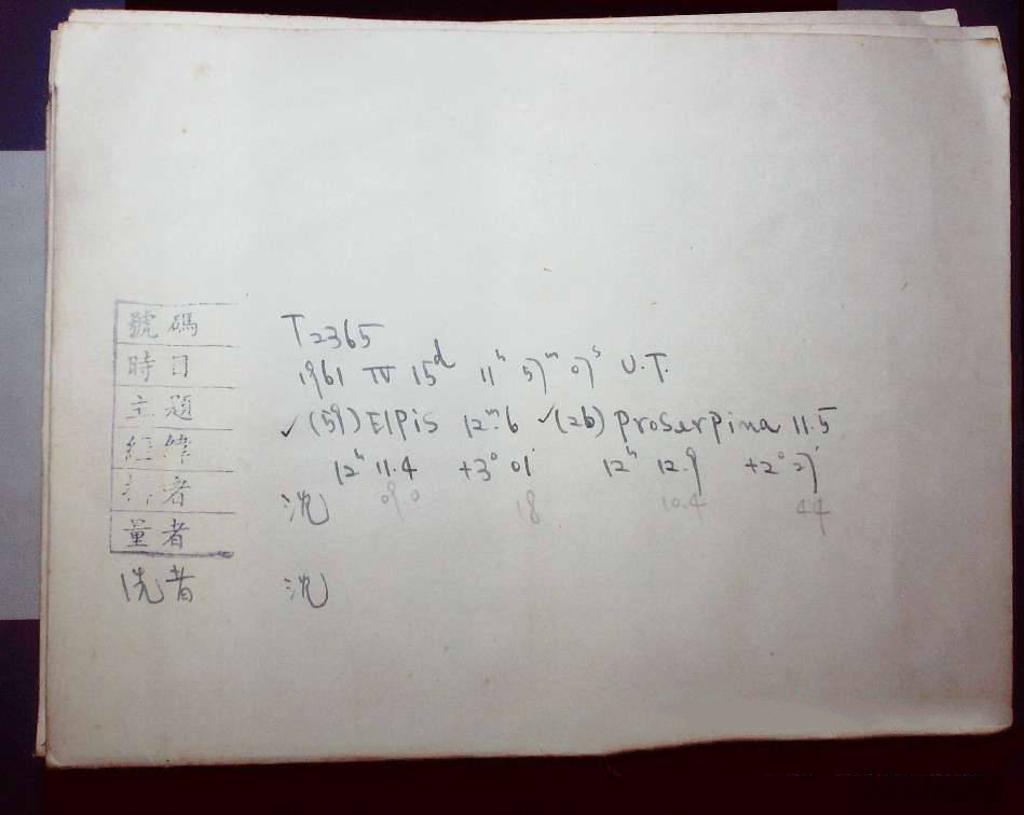 號碼 T2365
時日 1961 IV 15ᵈ 11ʰ 57ᵐ 07ˢ U.T.
主題 ✓(59) Elpis 12ᵐ.6 ✓(26) Proserpina 11.5
經緯 12ʰ 11.4 +3° 01' 12ʰ 12.9 +2° 27'
者 沈 09.0 18 10.4 44
量者
洗者 沈